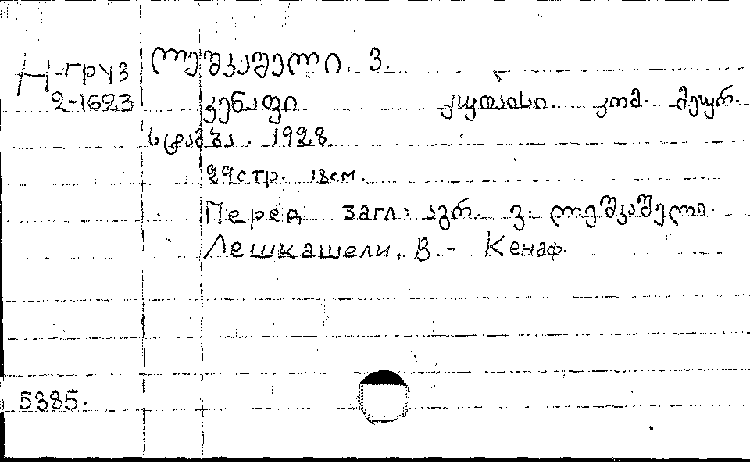 Н-груз ლეშკაშელი. ვ.
2-1623 კენაფი ქუთაისი. კომ. მეურ.
სტამბა. 1928
29стр. 18см.
Перед загл: აგრ. ვ. ლეშკაშელი.
Лешкашели, В. - Кенаф.
5385.